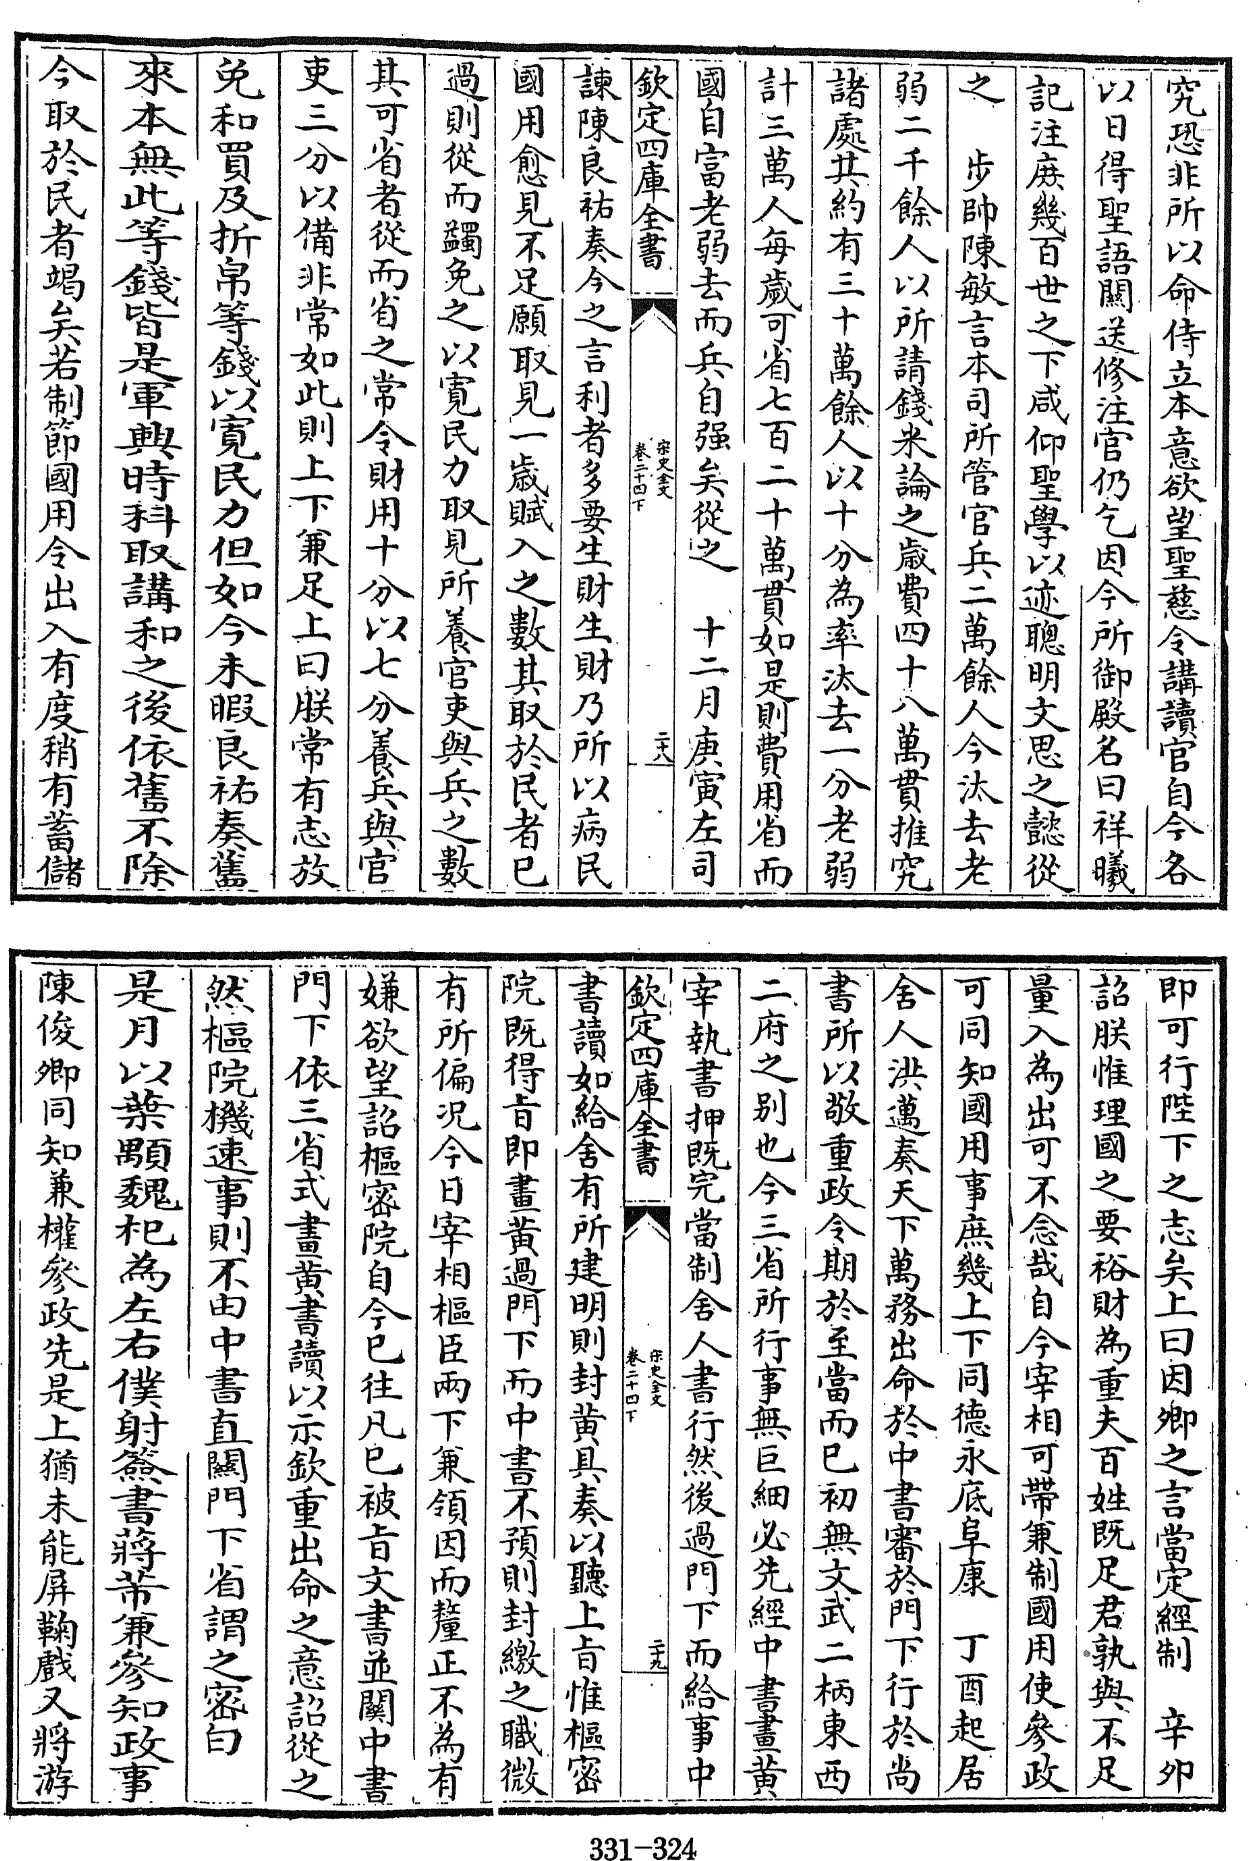 究恐非所以命侍立本意欲望聖慈令講讀官自今各
以日得聖語關送修注官仍乞因今所御殿名曰祥曦
記注庻幾百世之下咸仰聖學以迹聰明文思之懿從
之　步帥陳敏言本司所管官兵二萬餘人今汰去老
弱二千餘人以所請錢米論之歲費四十八萬貫推究
諸處共約有三十萬餘人以十分為率汰去一分老弱
計三萬人每歲可省七百二十萬貫如是則費用省而
國自富老弱去而兵自强矣從之　十二月庚寅左司
欽定四庫全書
宋史全文
卷二十四下
二十八
諫陳良祐奏今之言利者多要生財生財乃所以病民
國用愈見不足願取見一歲賦入之數其取於民者已
過則從而蠲免之以寛民力取見所養官吏與兵之數
其可省者從而省之常令財用十分以七分養兵與官
吏三分以備非常如此則上下兼足上曰朕常有志放
免和買及折帛等錢以寛民力但如今未暇良祐奏舊
來本無此等錢皆是軍興時科取講和之後依舊不除
今取於民者竭矣若制節國用令出入有度稍有蓄儲
即可行陛下之志矣上曰因卿之言當定經制　辛卯
詔朕惟理國之要裕財為重夫百姓既足君孰與不足
量入為出可不念哉自今宰相可帶兼制國用使參政
可同知國用事庶幾上下同德永底阜康　丁酉起居
舍人洪邁奏天下萬務出命於中書審於門下行於尚
書所以敬重政令期於至當而已初無文武二柄東西
二府之别也今三省所行事無巨細必先經中書畫黄
宰執書押既完當制舍人書行然後過門下而給事中
欽定四庫全書
宋史全文
卷二十四下
二十九
書讀如給舍有所建明則封黄具奏以聽上旨惟樞密
院既得旨即畫黄過門下而中書不預則封繳之職微
有所偏况今日宰相樞臣兩下兼領因而釐正不為有
嫌欲望詔樞密院自今已往凡已被旨文書並關中書
門下依三省式畫黄書讀以示欽重出命之意詔從之
然樞院機速事則不由中書直關門下省謂之密白
是月以葉顒魏杞為左右僕射簽書蔣芾兼參知政事
陳俊卿同知兼權參政先是上猶未能屏鞠戲又將游
331-324